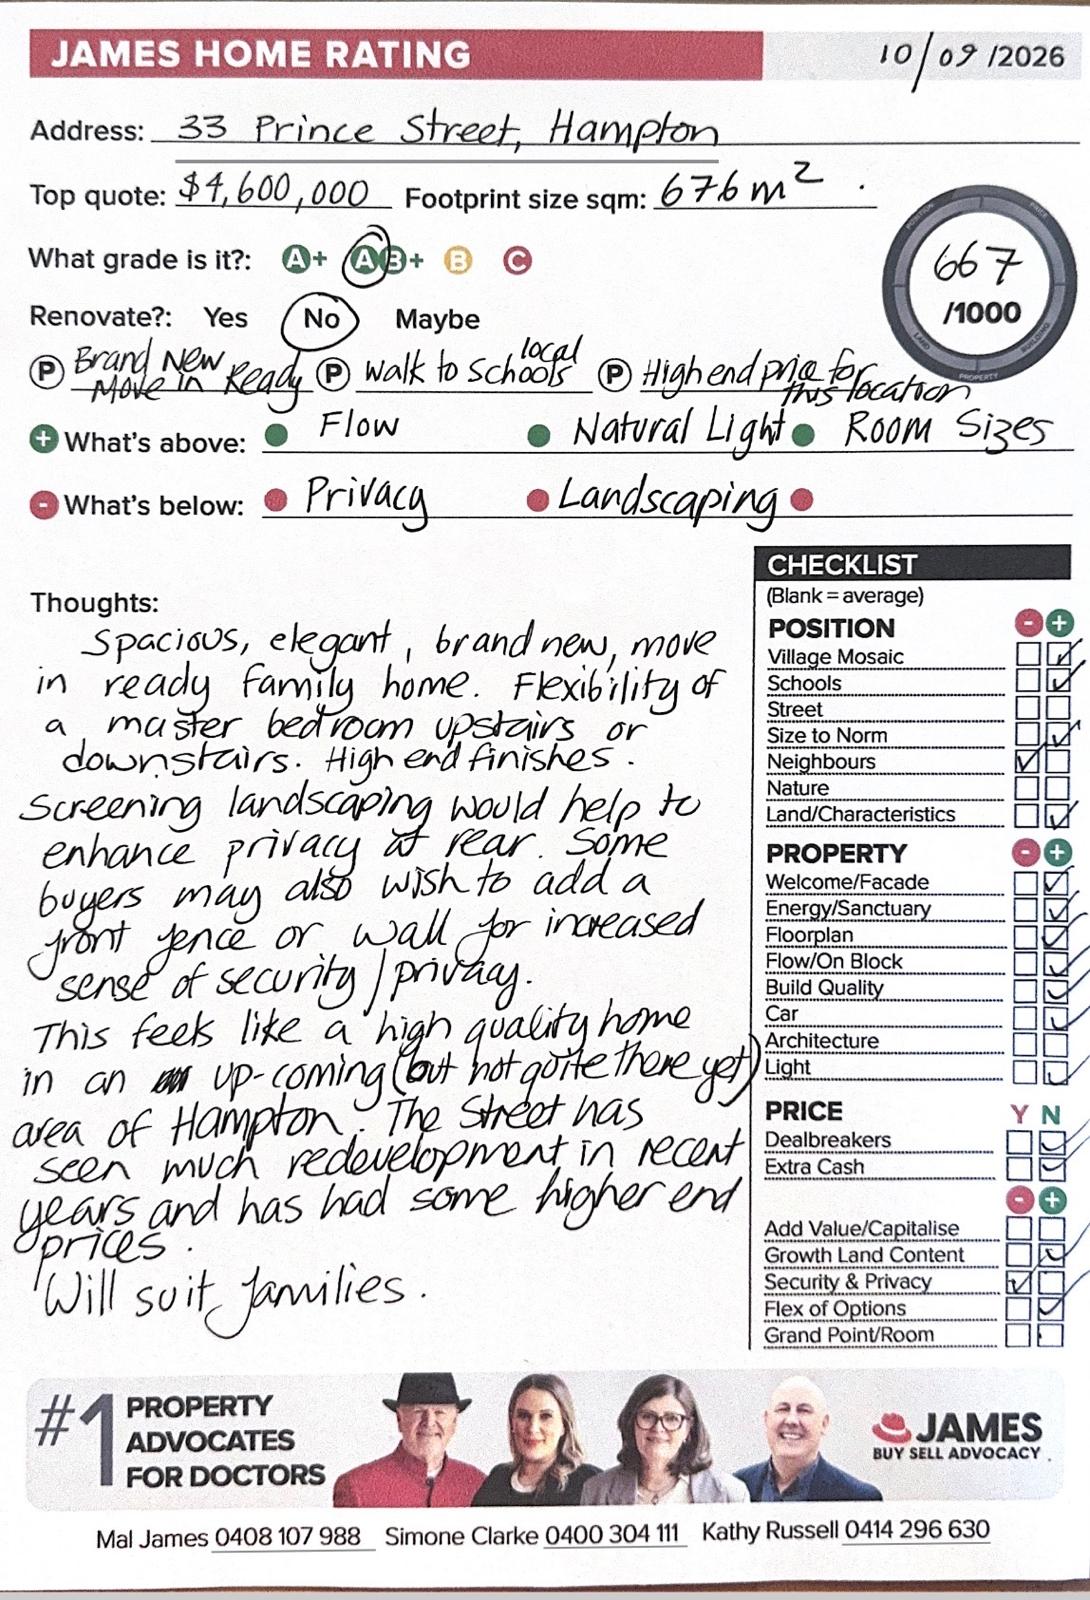 JAMES HOME RATING 10/09 /2026
Address: 33 Prince Street, Hampton
Top quote: $4,600,000 Footprint size sqm: 676 m² .
What grade is it?: A+ A B+ B C
667 /1000
Renovate?: Yes No Maybe
P Brand New Move in Ready P Walk to local Schools P High end price for this location
+ What's above: Flow Natural Light Room Sizes
- What's below: Privacy Landscaping
Thoughts:
Spacious, elegant, brand new, move
in ready family home. Flexibility of
a master bedroom upstairs or
downstairs. High end finishes.
Screening landscaping would help to
enhance privacy at rear. Some
buyers may also wish to add a
front fence or wall for increased
sense of security/privacy.
This feels like a high quality home
in an up-coming (but not quite there yet)
area of Hampton. The Street has
seen much redevelopment in recent
years and has had some higher end
prices.
Will suit families.
CHECKLIST
(Blank = average)
POSITION - +
Village Mosaic
Schools
Street
Size to Norm
Neighbours
Nature
Land/Characteristics
PROPERTY - +
Welcome/Facade
Energy/Sanctuary
Floorplan
Flow/On Block
Build Quality
Car
Architecture
Light
PRICE Y N
Dealbreakers
Extra Cash
- +
Add Value/Capitalise
Growth Land Content
Security & Privacy
Flex of Options
Grand Point/Room
#1 PROPERTY
ADVOCATES
FOR DOCTORS
JAMES
BUY SELL ADVOCACY
Mal James 0408 107 988 Simone Clarke 0400 304 111 Kathy Russell 0414 296 630